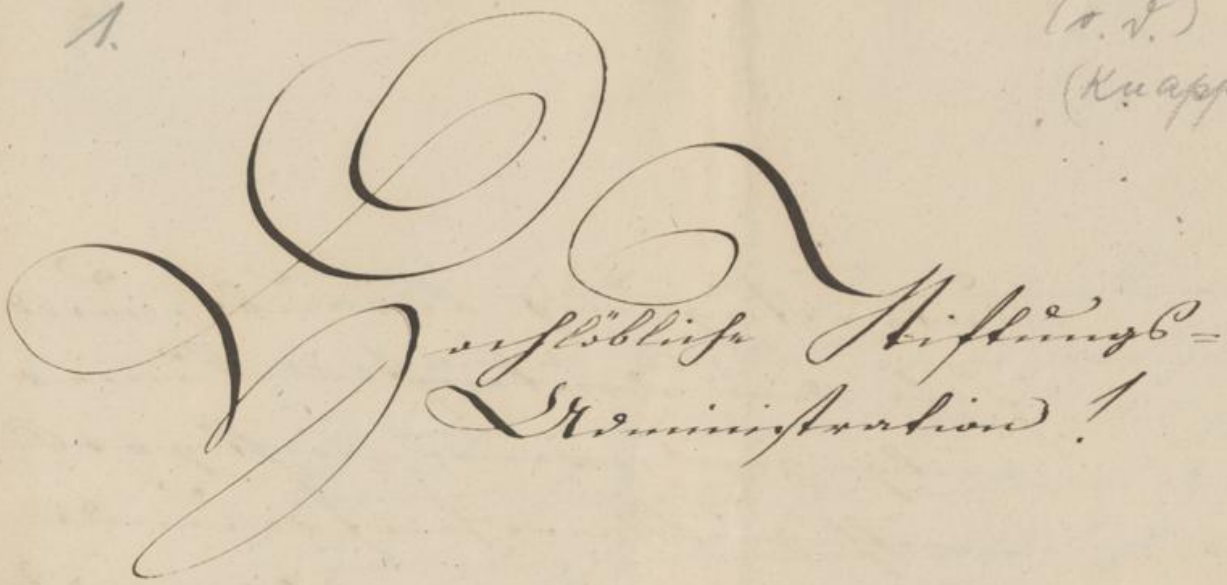 1.
(o. D.)
(Knapp
Hochlöbliche Stiftungs=
Administration!